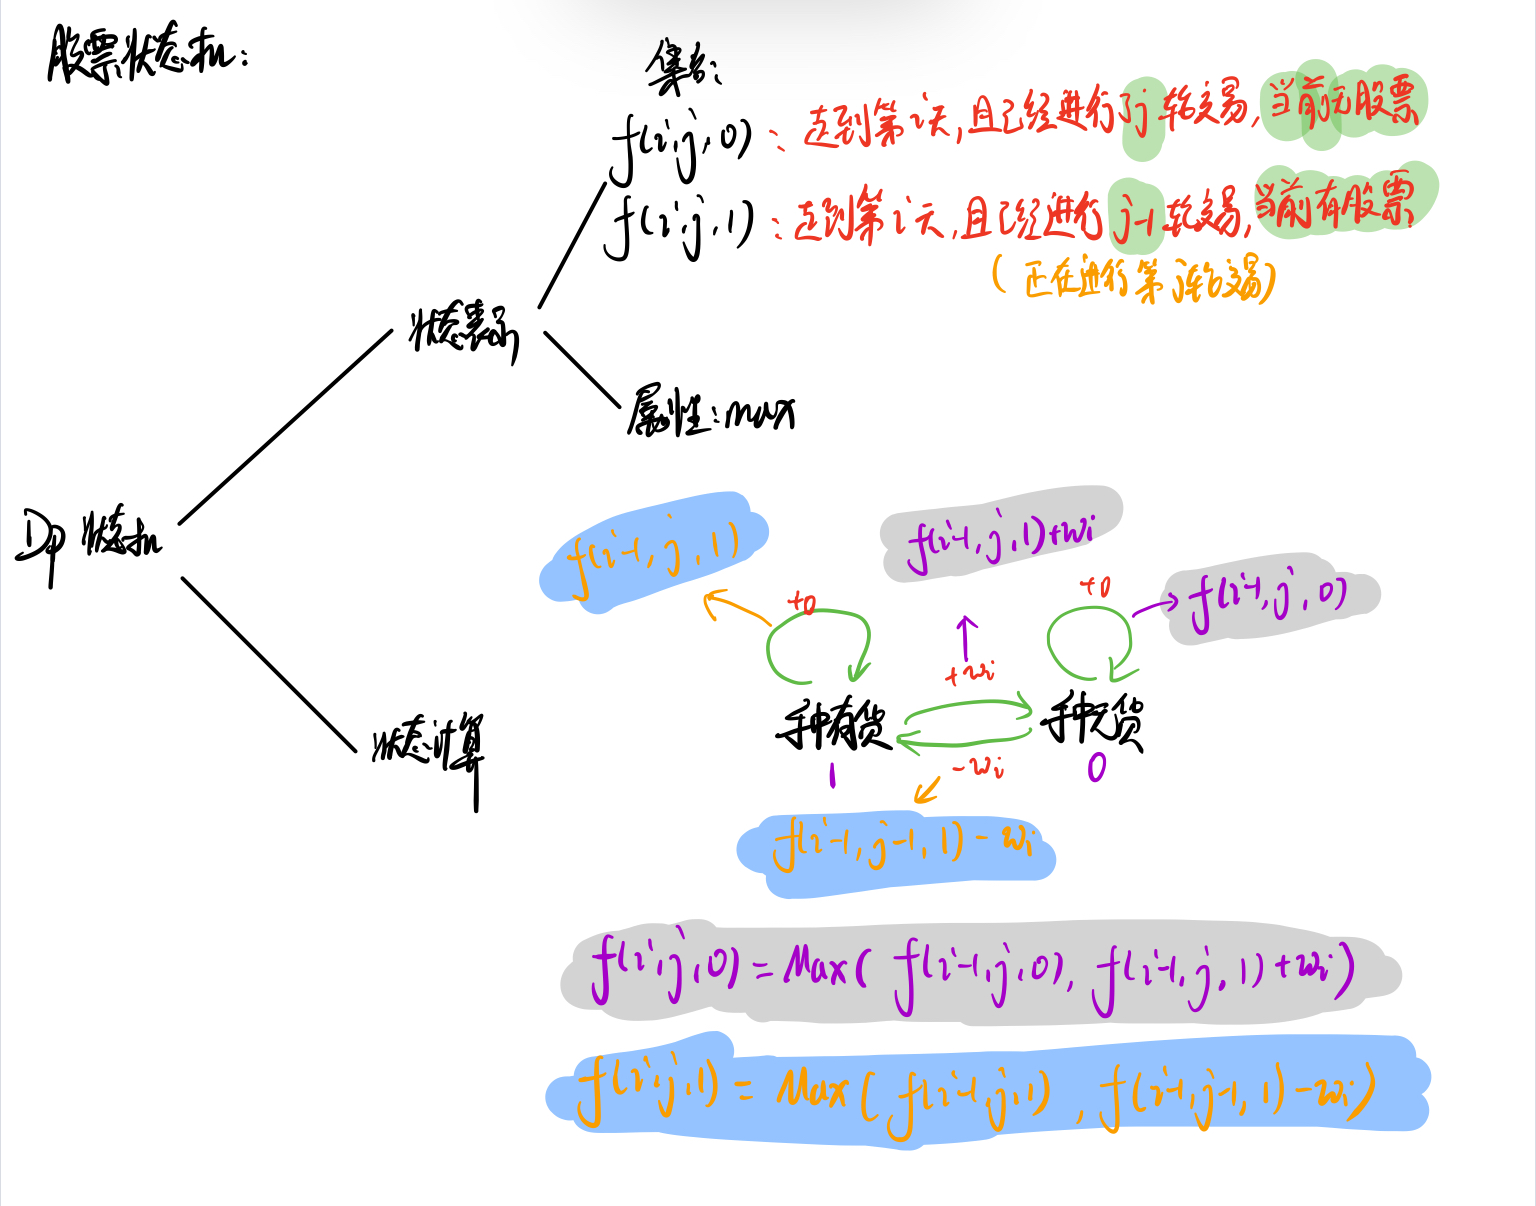 股票状态机:
集合:
f(i,j,0): 走到第i天,且已经进行了j轮交易,当前无股票
f(i,j,1): 走到第i天,且已经进行j-1轮交易,当前有股票
(正在进行第j轮交易)
状态表示
属性:max
Dp 状态机
f(i-1,j,1)
f(i-1,j,1)+wi
f(i-1,j,0)
+0
+0
+wi
手中有货
手中无货
1
0
-wi
状态计算
f(i-1,j-1,1)-wi
f(i,j,0)=Max( f(i-1,j,0), f(i-1,j,1)+wi)
f(i,j,1)= Max( f(i-1,j,1), f(i-1,j-1,1)-wi)